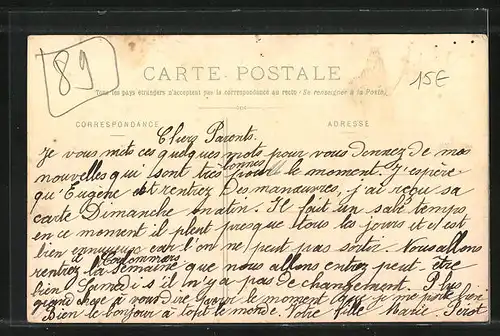 89
15€
CARTE POSTALE
Tous les pays étrangers n'acceptent pas la correspondance au recto (Se renseigner à la Poste)
CORRESPONDANCE
ADRESSE
Chers Parents.
Je vous mets ces quelques mots pour vous donnez de mes
nouvelles qui sont très bonnes pour le moment. J'espère
qu'Eugène est rentrez des manœuvres, j'ai reçu sa
carte Dimanche matin. Il fait un sale temps
en ce moment il pleut presque tous les jours et c'est
bien ennuyeux car l'on ne peut pas sortir. Nous allons
rentrez à Coulommiers la semaine que nous allons entrez peut-être
bien Samedi s'il n'y a pas de changement. Plus
grand chose à vous dire pour le moment je me porte bien.
Bien le bonjour à tout le monde. Votre fille Marie